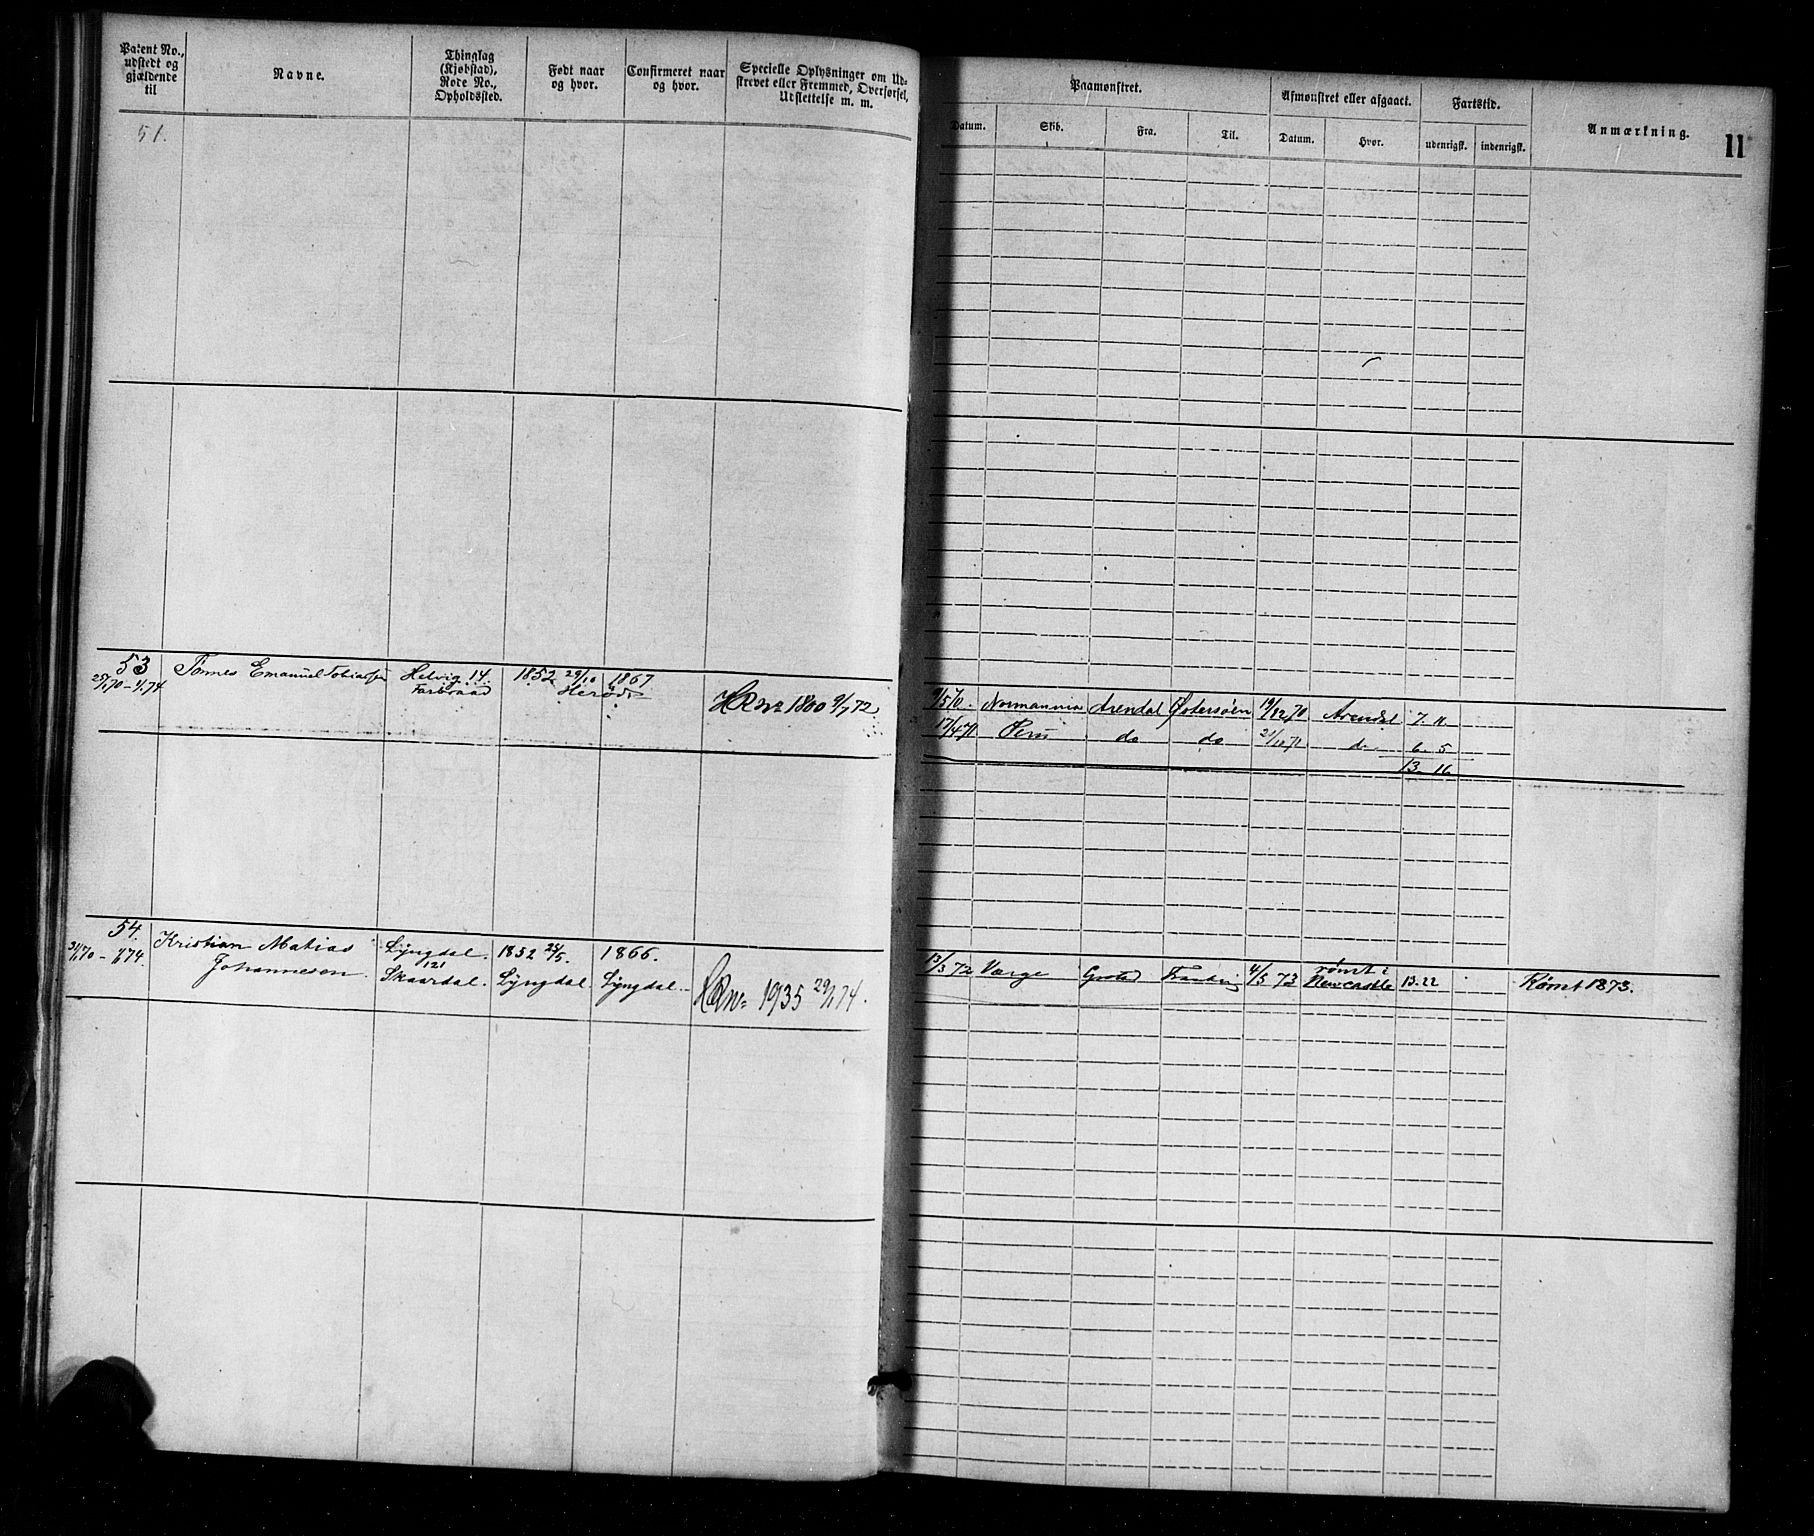 Patent No., udstedt og gjældende til
Navne.
Thinglag (Kjøbstad), Rode No., Opholdssted.
Født naar og hvor.
Confirmeret naar og hvor.
Specielle Oplysninger om Udskrevet eller Fremmed, Overførsel, Udslettelse m. m.
Paamønstret.
Afmønstret eller afgaaet.
Fartstid.
Anmærkning.
11
Datum.
Skib.
Fra.
Til.
Datum.
Hvor.
udenrigsk.
indenrigsk.
51.
53
Tønnes Emanuel Tobiassen
Helvig 14.
1852 29/10
1867
HRNo 1800 9/1 72
9/5 70. Normannia Arendal Østersøen 19/12 70 Arendal 7. 11
17/4 71 Peru do do 21/10 71 do 6. 5
13. 16
54.
Kristian Matias
Johannesen.
Lyngdal.
121
Skaardal.
1852 25/5.
Lyngdal.
1866.
Lyngdal.
HRNo 1935 29/1 74.
13/3 72 Varge
4/5 73
rømt i
Newcastle
13. 22
Rømt 1873.